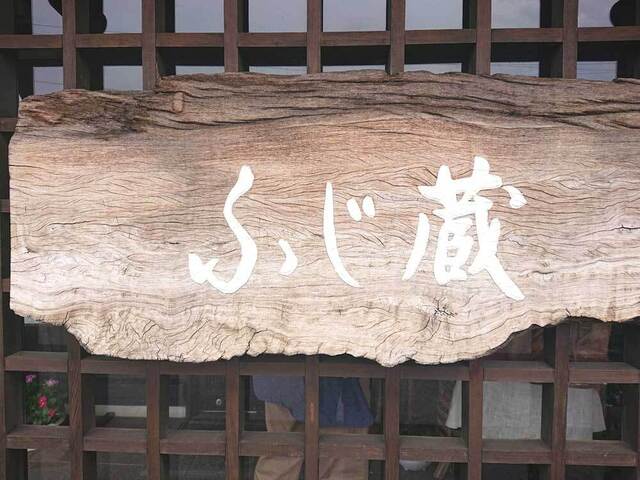 ふじ蔵